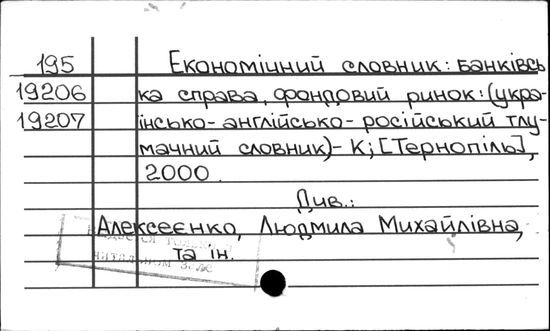 195 Економічний словник: банківсь
19206 ка справа, фондовий ринок: (укра-
19207 їнсько-англійсько-російський тлу-
мачний словник)-К; [Тернопіль],
2000.
Див.:
Алексеєнко, Людмила Михайлівна,
та ін.